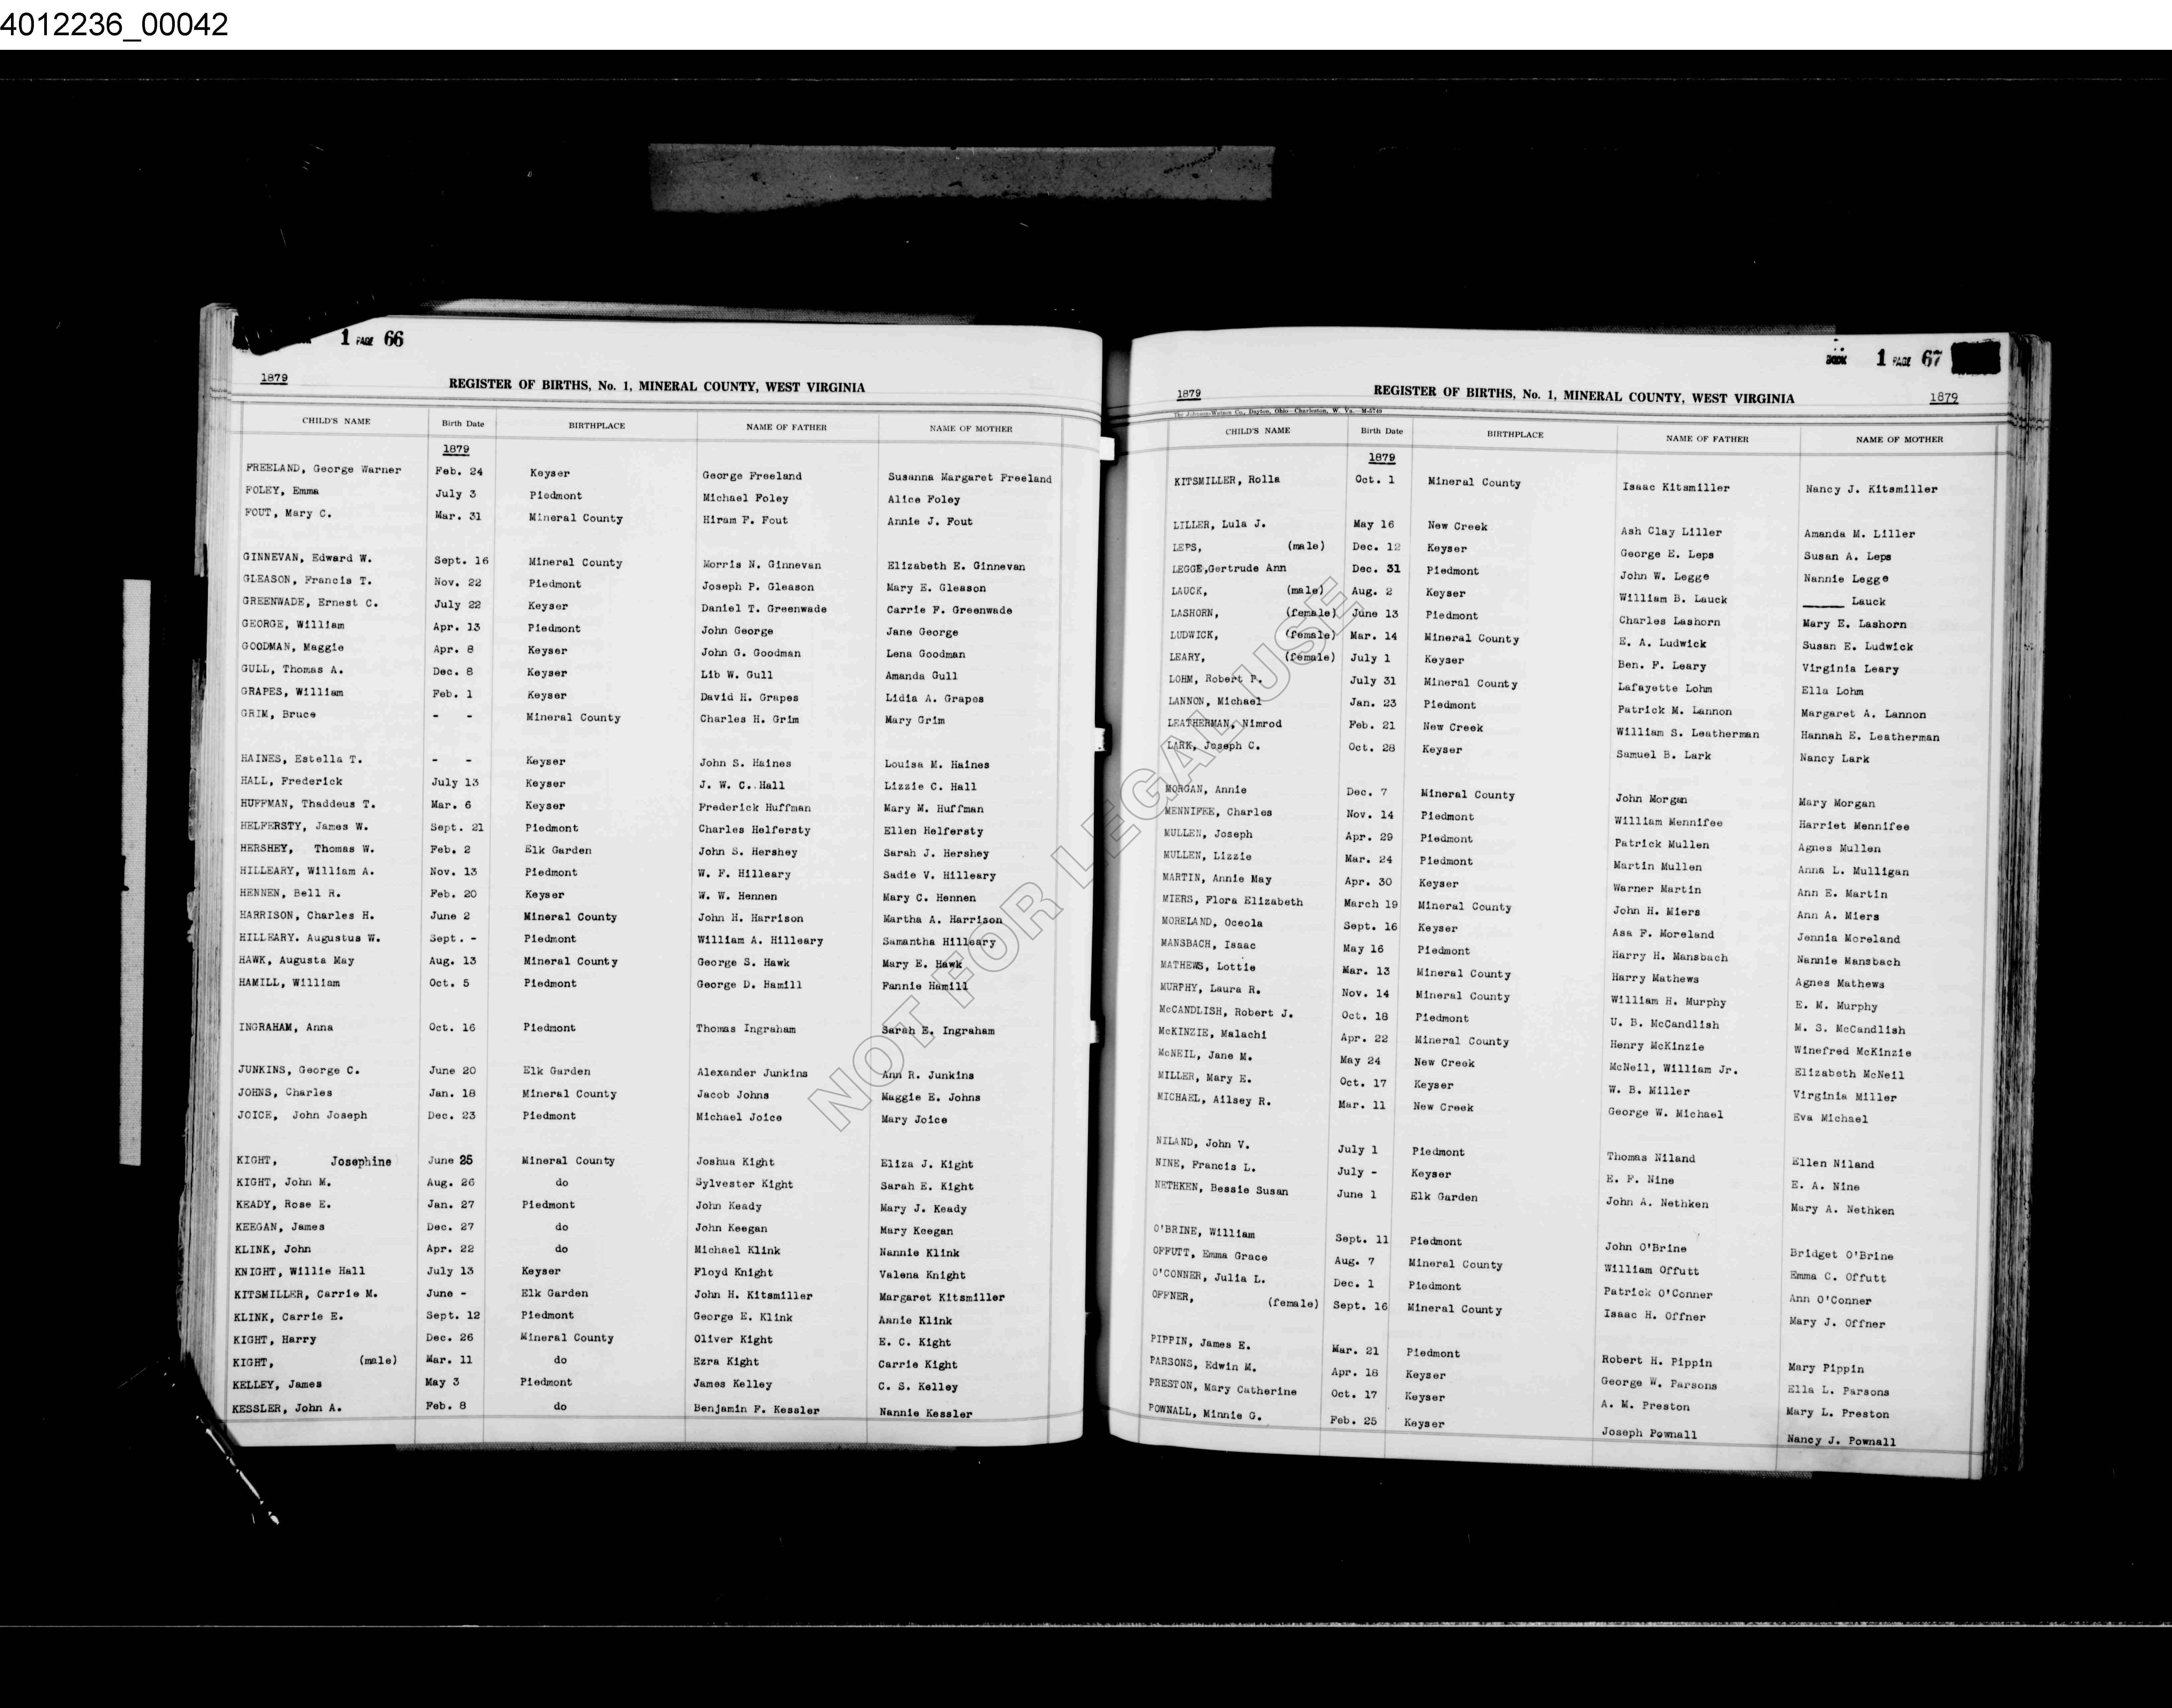 4012236_00042
1 PAGE 66
1879
REGISTER OF BIRTHS, No. 1, MINERAL COUNTY, WEST VIRGINIA
CHILD'S NAME Birth Date BIRTHPLACE NAME OF FATHER NAME OF MOTHER
1879
FREELAND, George Warner Feb. 24 Keyser George Freeland Susanna Margaret Freeland
FOLEY, Emma July 3 Piedmont Michael Foley Alice Foley
FOUT, Mary C. Mar. 31 Mineral County Hiram F. Fout Annie J. Fout
GINNEVAN, Edward W. Sept. 16 Mineral County Morris N. Ginnevan Elizabeth E. Ginnevan
GLEASON, Francis T. Nov. 22 Piedmont Joseph P. Gleason Mary E. Gleason
GREENWADE, Ernest C. July 22 Keyser Daniel T. Greenwade Carrie F. Greenwade
GEORGE, William Apr. 13 Piedmont John George Jane George
GOODMAN, Maggie Apr. 8 Keyser John G. Goodman Lena Goodman
GULL, Thomas A. Dec. 8 Keyser Lib W. Gull Amanda Gull
GRAPES, William Feb. 1 Keyser David H. Grapes Lidia A. Grapes
GRIM, Bruce - - Mineral County Charles H. Grim Mary Grim
HAINES, Estella T. - - Keyser John S. Haines Louisa M. Haines
HALL, Frederick July 13 Keyser J. W. C. Hall Lizzie C. Hall
HUFFMAN, Thaddeus T. Mar. 6 Keyser Frederick Huffman Mary M. Huffman
HELFERSTY, James W. Sept. 21 Piedmont Charles Helfersty Ellen Helfersty
HERSHEY, Thomas W. Feb. 2 Elk Garden John S. Hershey Sarah J. Hershey
HILLEARY, William A. Nov. 13 Piedmont W. F. Hilleary Sadie V. Hilleary
HENNEN, Bell R. Feb. 20 Keyser W. W. Hennen Mary C. Hennen
HARRISON, Charles H. June 2 Mineral County John H. Harrison Martha A. Harrison
HILLEARY. Augustus W. Sept. - Piedmont William A. Hilleary Samantha Hilleary
HAWK, Augusta May Aug. 13 Mineral County George S. Hawk Mary E. Hawk
HAMILL, William Oct. 5 Piedmont George D. Hamill Fannie Hamill
INGRAHAM, Anna Oct. 16 Piedmont Thomas Ingraham Sarah E. Ingraham
JUNKINS, George C. June 20 Elk Garden Alexander Junkins Ann R. Junkins
JOHNS, Charles Jan. 18 Mineral County Jacob Johns Maggie E. Johns
JOICE, John Joseph Dec. 23 Piedmont Michael Joice Mary Joice
KIGHT, Josephine June 25 Mineral County Joshua Kight Eliza J. Kight
KIGHT, John M. Aug. 26 do Sylvester Kight Sarah E. Kight
KEADY, Rose E. Jan. 27 Piedmont John Keady Mary J. Keady
KEEGAN, James Dec. 27 do John Keegan Mary Keegan
KLINK, John Apr. 22 do Michael Klink Nannie Klink
KNIGHT, Willie Hall July 13 Keyser Floyd Knight Valena Knight
KITSMILLER, Carrie M. June - Elk Garden John H. Kitsmiller Margaret Kitsmiller
KLINK, Carrie E. Sept. 12 Piedmont George E. Klink Annie Klink
KIGHT, Harry Dec. 26 Mineral County Oliver Kight E. C. Kight
KIGHT, (male) Mar. 11 do Ezra Kight Carrie Kight
KELLEY, James May 3 Piedmont James Kelley C. S. Kelley
KESSLER, John A. Feb. 8 do Benjamin F. Kessler Nannie Kessler
BOOK 1 PAGE 67
1879 REGISTER OF BIRTHS, No. 1, MINERAL COUNTY, WEST VIRGINIA 1879
The Johnson-Watson Co., Dayton, Ohio Charleston, W. Va. M-5749
CHILD'S NAME Birth Date BIRTHPLACE NAME OF FATHER NAME OF MOTHER
1879
KITSMILLER, Rolla Oct. 1 Mineral County Isaac Kitsmiller Nancy J. Kitsmiller
LILLER, Lula J. May 16 New Creek Ash Clay Liller Amanda M. Liller
LEPS, (male) Dec. 12 Keyser George E. Leps Susan A. Leps
LEGGE,Gertrude Ann Dec. 31 Piedmont John W. Legge Nannie Legge
LAUCK, (male) Aug. 2 Keyser William B. Lauck _____ Lauck
LASHORN, (female) June 13 Piedmont Charles Lashorn Mary E. Lashorn
LUDWICK, (female) Mar. 14 Mineral County E. A. Ludwick Susan E. Ludwick
LEARY, (female) July 1 Keyser Ben. F. Leary Virginia Leary
LOHM, Robert P. July 31 Mineral County Lafayette Lohm Ella Lohm
LANNON, Michael Jan. 23 Piedmont Patrick M. Lannon Margaret A. Lannon
LEATHERMAN, Nimrod Feb. 21 New Creek William S. Leatherman Hannah E. Leatherman
LARK, Joseph C. Oct. 28 Keyser Samuel B. Lark Nancy Lark
MORGAN, Annie Dec. 7 Mineral County John Morgan Mary Morgan
MENNIFEE, Charles Nov. 14 Piedmont William Mennifee Harriet Mennifee
MULLEN, Joseph Apr. 29 Piedmont Patrick Mullen Agnes Mullen
MULLEN, Lizzie Mar. 24 Piedmont Martin Mullen Anna L. Mulligan
MARTIN, Annie May Apr. 30 Keyser Warner Martin Ann E. Martin
MIERS, Flora Elizabeth March 19 Mineral County John H. Miers Ann A. Miers
MORELAND, Oceola Sept. 16 Keyser Asa F. Moreland Jennia Moreland
MANSBACH, Isaac May 16 Piedmont Harry H. Mansbach Nannie Mansbach
MATHEWS, Lottie Mar. 13 Mineral County Harry Mathews Agnes Mathews
MURPHY, Laura R. Nov. 14 Mineral County William H. Murphy E. M. Murphy
McCANDLISH, Robert J. Oct. 18 Piedmont U. B. McCandlish M. S. McCandlish
McKINZIE, Malachi Apr. 22 Mineral County Henry McKinzie Winefred McKinzie
McNEIL, Jane M. May 24 New Creek McNeil, William Jr. Elizabeth McNeil
MILLER, Mary E. Oct. 17 Keyser W. B. Miller Virginia Miller
MICHAEL, Ailsey R. Mar. 11 New Creek George W. Michael Eva Michael
NILAND, John V. July 1 Piedmont Thomas Niland Ellen Niland
NINE, Francis L. July - Keyser E. F. Nine E. A. Nine
NETHKEN, Bessie Susan June 1 Elk Garden John A. Nethken Mary A. Nethken
O'BRINE, William Sept. 11 Piedmont John O'Brine Bridget O'Brine
OFFUTT, Emma Grace Aug. 7 Mineral County William Offutt Emma C. Offutt
O'CONNER, Julia L. Dec. 1 Piedmont Patrick O'Conner Ann O'Conner
OFFNER, (female) Sept. 16 Mineral County Isaac H. Offner Mary J. Offner
PIPPIN, James E. Mar. 21 Piedmont Robert H. Pippin Mary Pippin
PARSONS, Edwin M. Apr. 18 Keyser George W. Parsons Ella L. Parsons
PRESTON, Mary Catherine Oct. 17 Keyser A. M. Preston Mary L. Preston
POWNALL, Minnie G. Feb. 25 Keyser Joseph Pownall Nancy J. Pownall
NOT FOR LEGAL USE